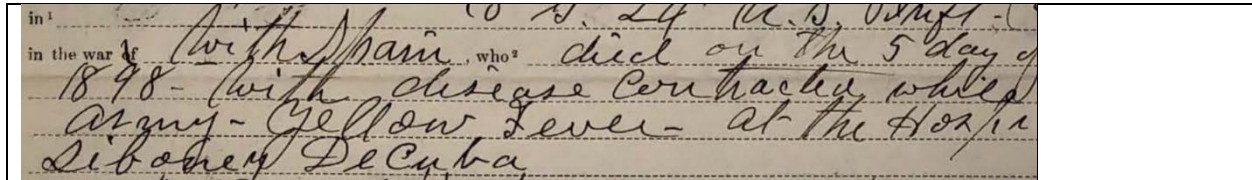 in¹ Co G. 24 U.S. Inft-
in the war of With Spain, who² died on the 5 day of
1898- With disease Contracted while
army- Yellow Fever- at the Hospi
Siboney De Cuba